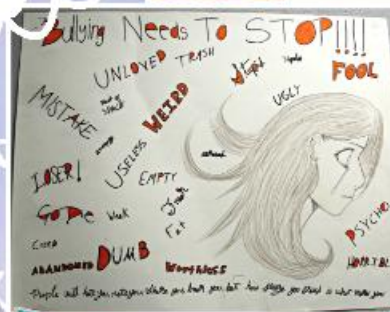 Bullying Needs To STOP!!!!
UNLOVED TRASH
Stupid
FOOL
MISTAKE
WEIRD
UGLY
USELESS
LOSER!
EMPTY
Go Die Weak
Fat
PSYCHO
Creep
ABANDONED DUMB
WORTHLESS
HORRIBLE
People will hate you, rate you, shake you, break you, but how strong you stand is what makes you